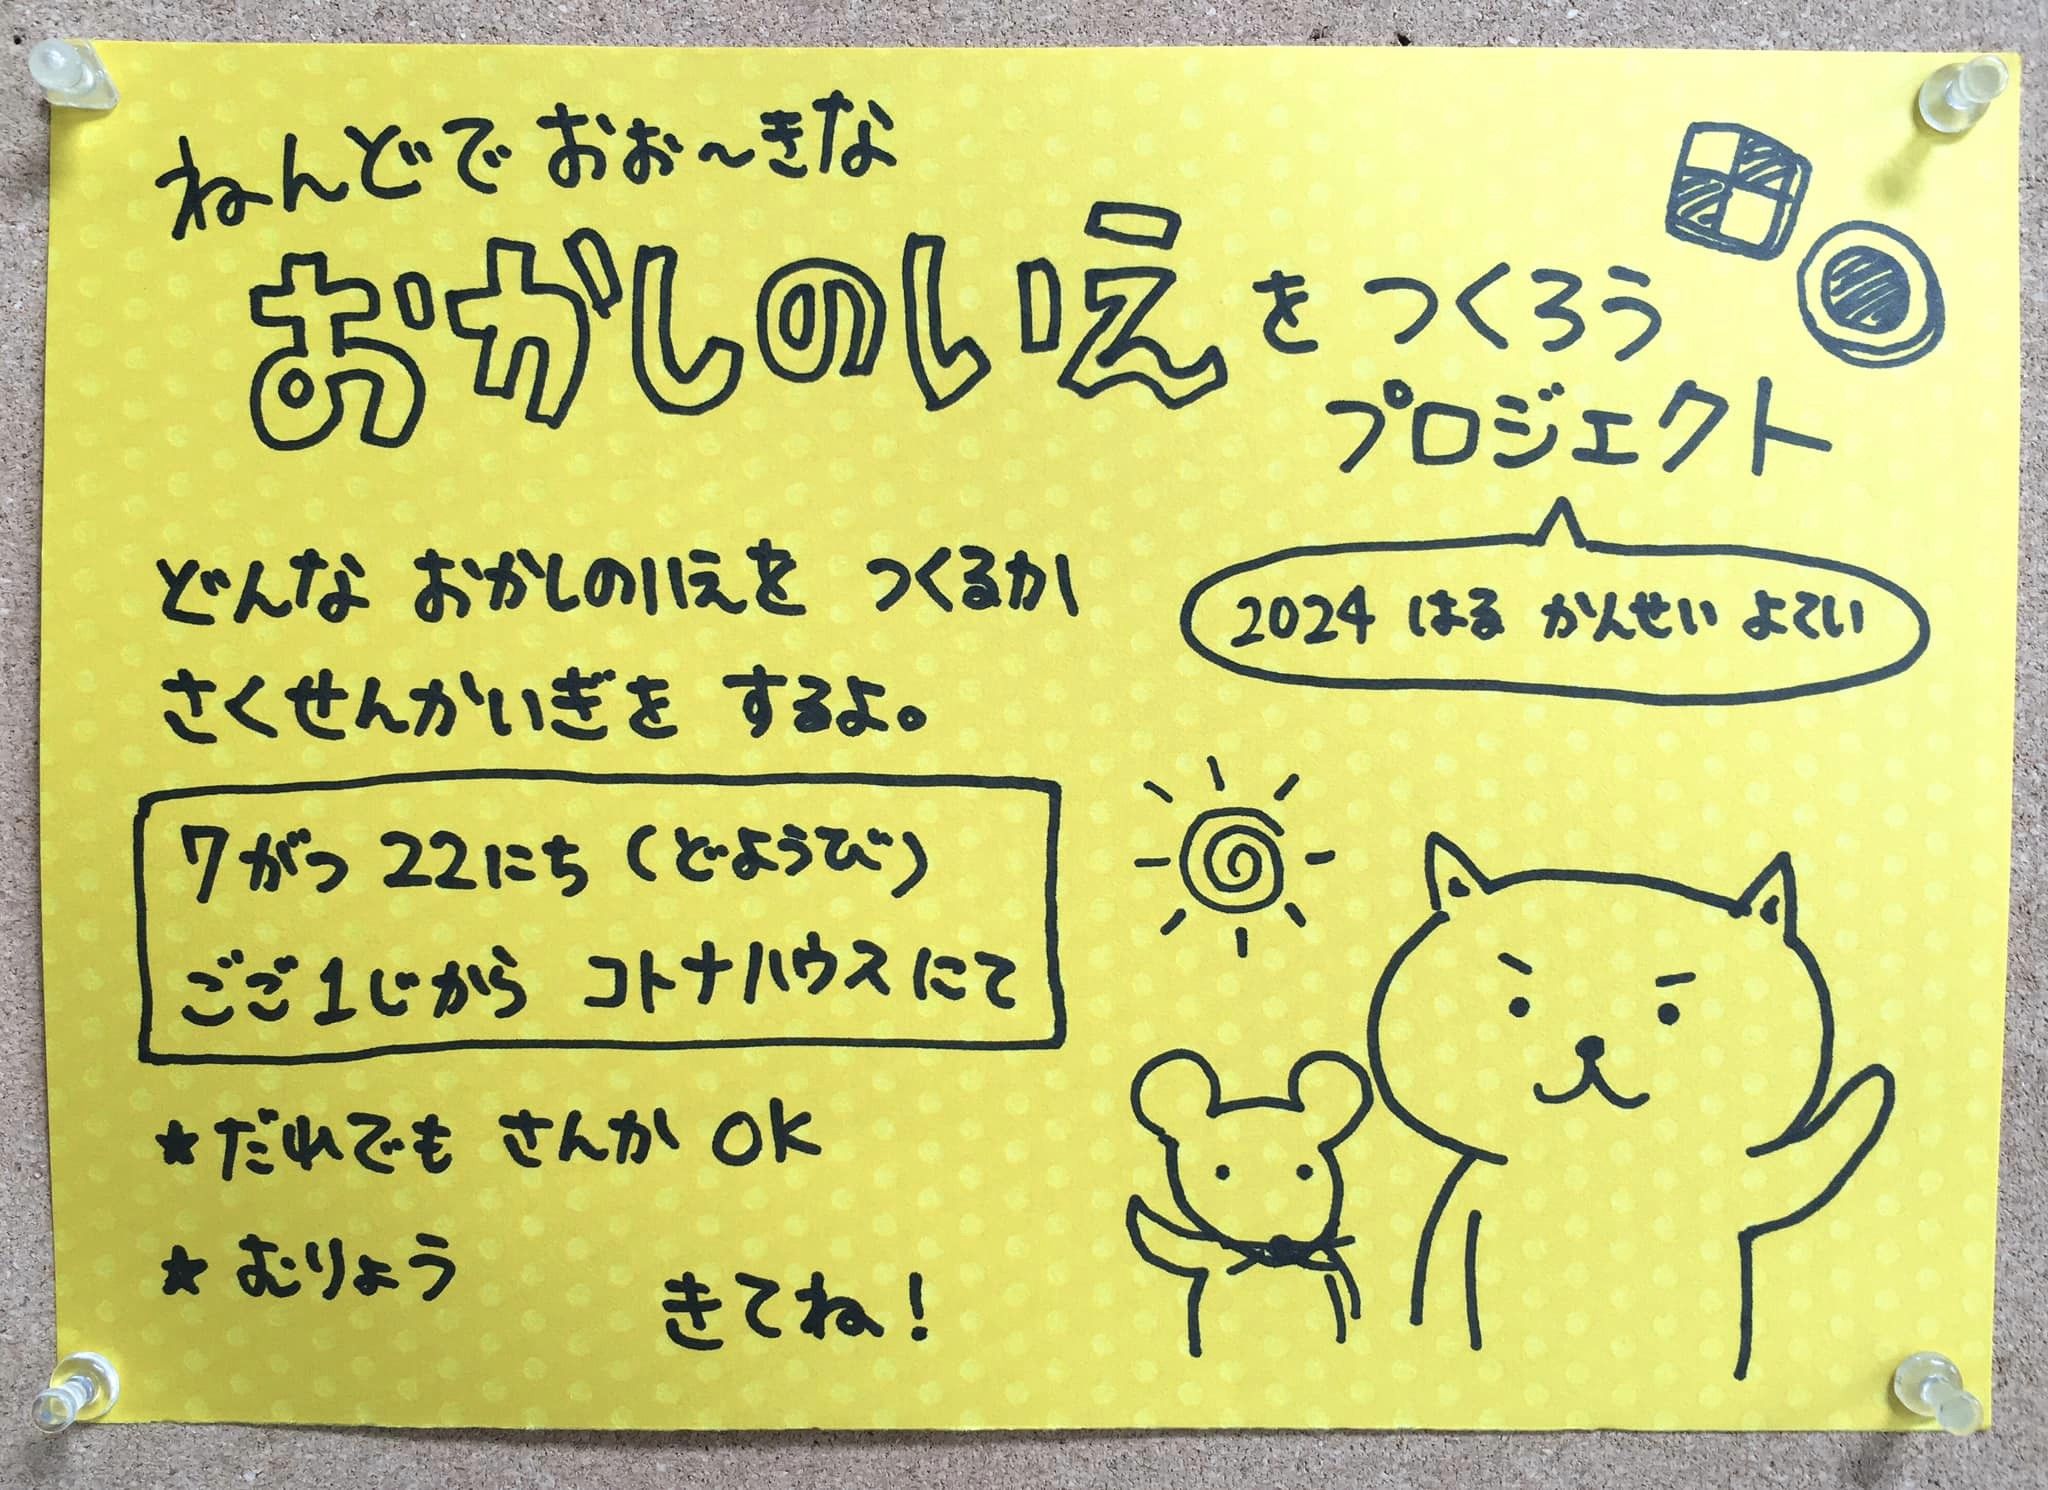 ねんどで おぉ〜きな
おかしのいえ を つくろう
プロジェクト
2024 はる かんせい よてい
どんな おかしのいえを つくるか
さくせんかいぎを するよ。
7がつ 22にち (どようび)
ごご1じから コトナハウスにて
★ だれでも さんか OK
★ むりょう
きてね!